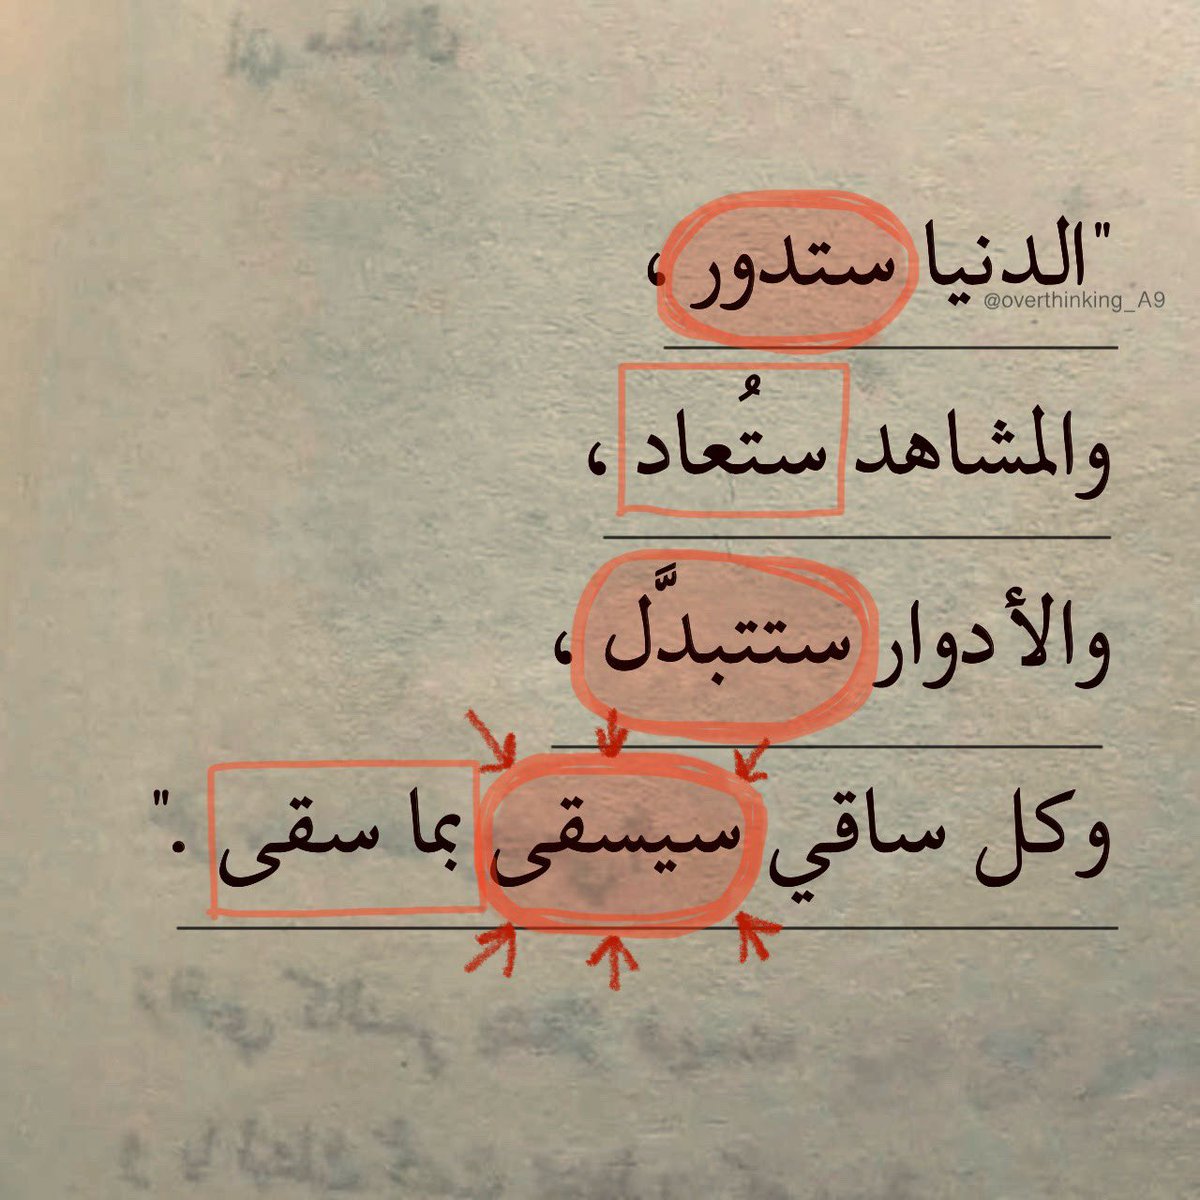 "الدنيا ستدور ،
@overthinking_A9
والمشاهد ستُعاد ،
والأدوار ستتبدَّل ،
وكل ساقي سيسقى بما سقى ."